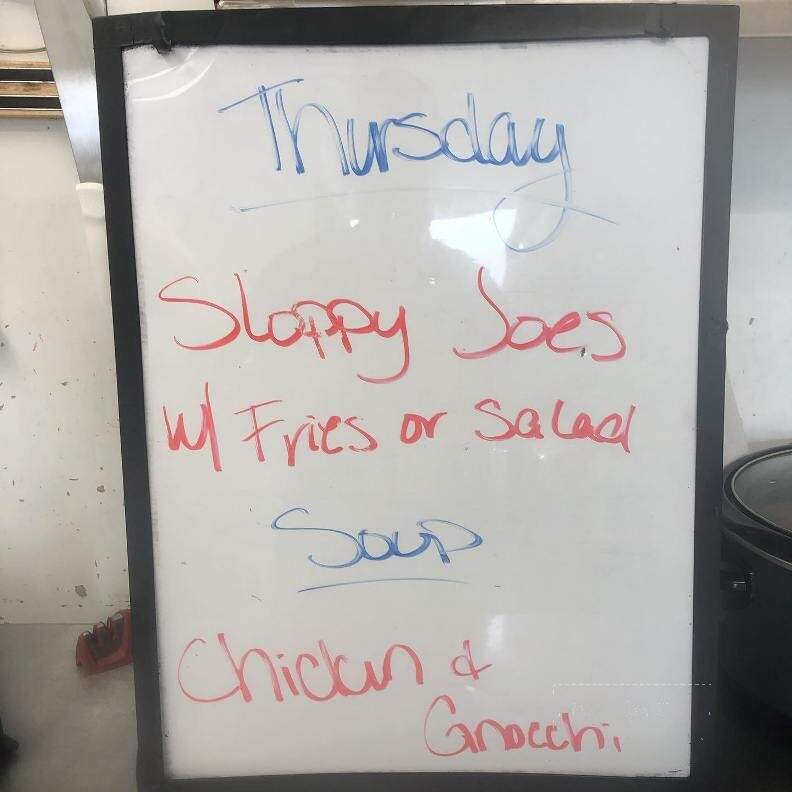 Thursday
Sloppy Joes
w/ Fries or Salad
Soup
Chicken &
Gnocchi